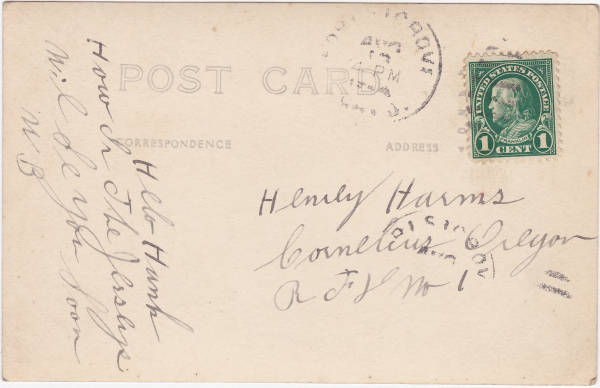 POST CARD
CORRESPONDENCE
ADDRESS
UNITED STATES POSTAGE
FRANKLIN
1 CENT 1
AUG
4 PM
Hello Hank
How Is The Jerseys
Will See you Soon
W B
Henry Harms
Cornelius Oregon
R F D No 1